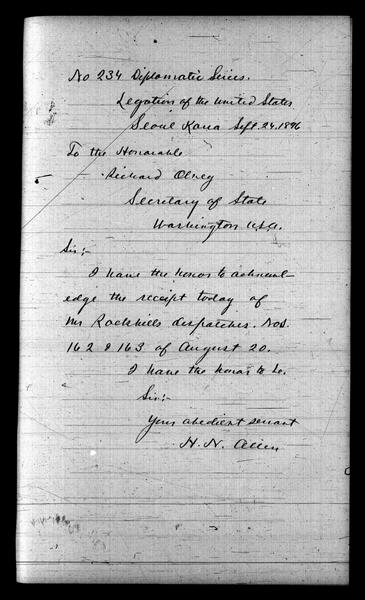 No 234 Diplomatic Series.
Legation of the United States
Seoul Korea Sept. 24, 1896
To the Honorable
Richard Olney
Secretary of State
Washington U.S.A.
Sir;-
I have the honor to acknowl-
edge the receipt today of
Mr Rockhills despatches. Nos.
162 & 163 of August 20.
I have the honor to be.
Sir:-
Your obedient servant
H. N. Allen